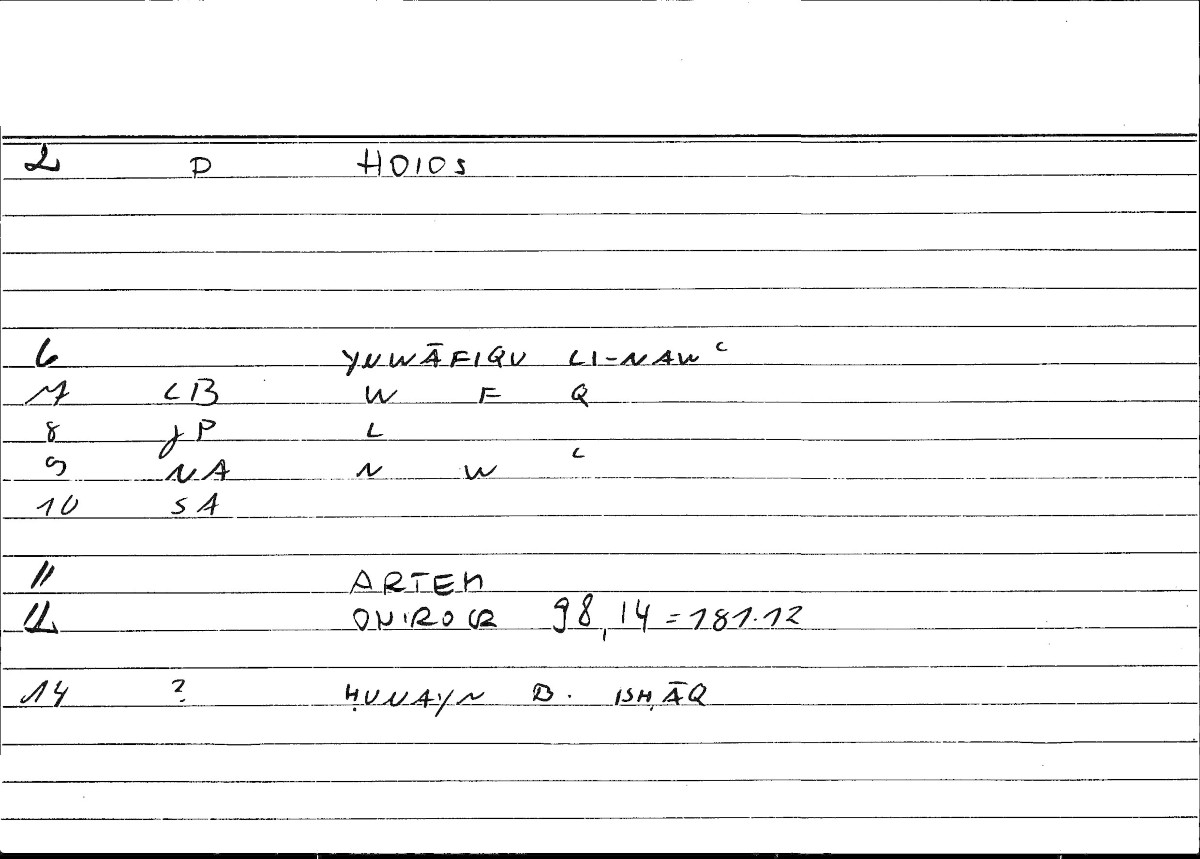 2 P HOIOS
6 YUWĀFIQU LI-NAWᶜ
7 CB W F Q
8 JP L
9 NA N W ᶜ
10 SA
11 ARTEM
12 ONIROCR 98,14 = 181.12
14 ? ḤUNAYN B. ISḤĀQ